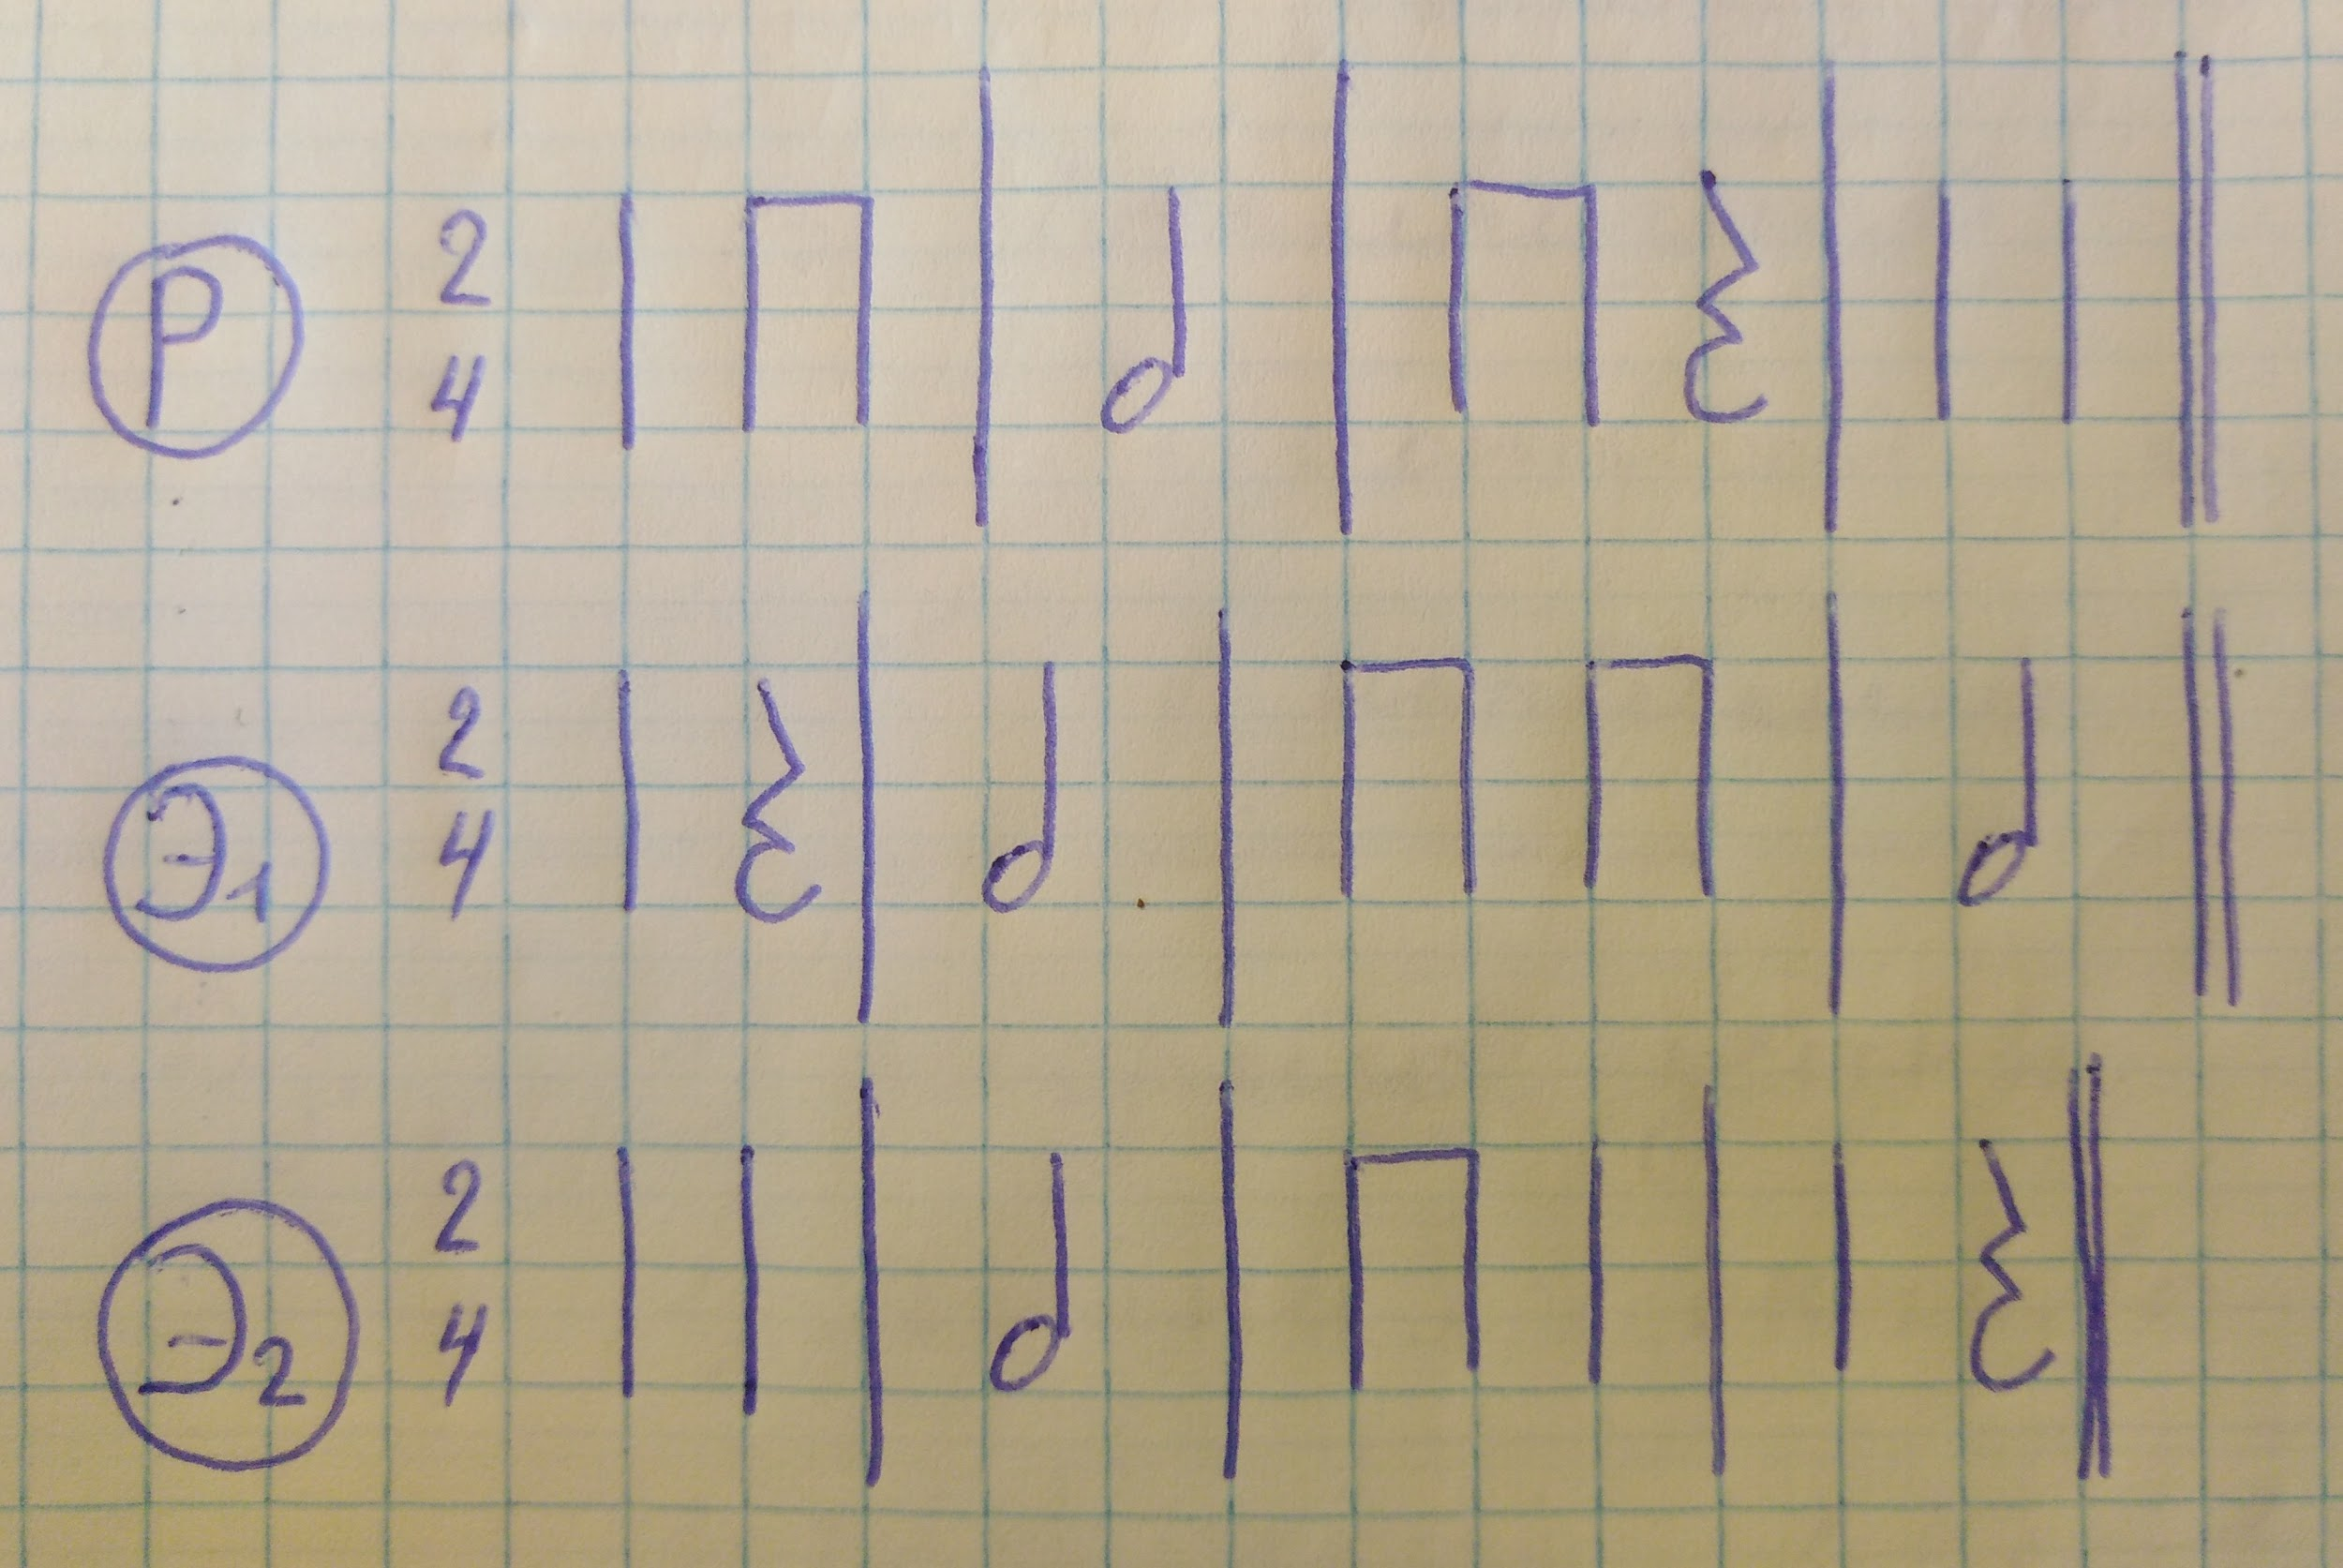 Р 2 4
Э1 2 4
Э2 2 4